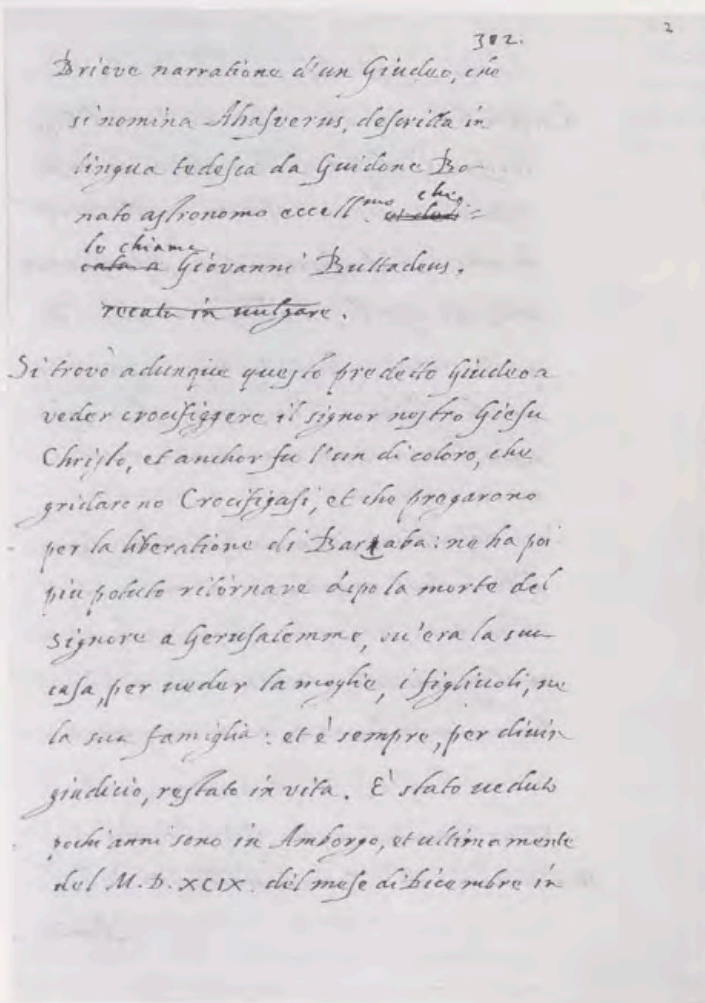 302.
2
Brieve narratione d'un Giudeo, che
si nomina Ahasverus, descritta in
lingua tedesca da Guidone Bo-
nato astronomo eccell.mo chia=
lo chiama
Giovanni Buttadeus.
recata in uulgare.
Si trovò adunque questo predetto Giudeo a
veder crocifiggere il signor nostro Giesu
Christo, et anchor fu l'un di coloro, che
gridarono Crocifigasi, et che pregarono
per la liberatione di Barraba: ne ha poi
piu potuto ritornare dipo la morte del
Signore a Gerusalemme, ou'era la sua
casa, per ueder la moglie, i figliuoli, ne
la sua famiglia: et è sempre, per diuin
giudicio, restato in vita. E' stato ueduto
pochi anni sono in Amborgo, et ultimamente
del M.D.XCIX. del mese di Dicembre in